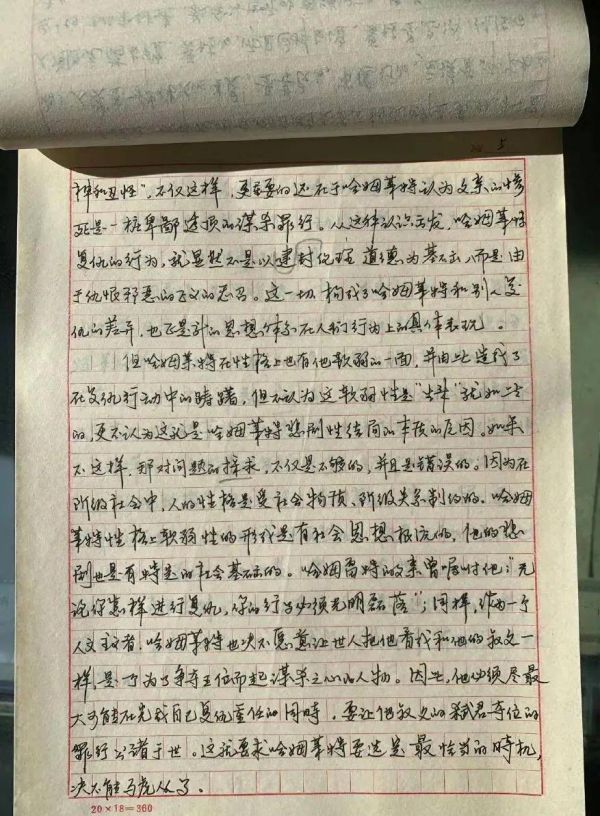 5
神和丑怪"，不仅这样，更主要的还在于哈姆莱特认为父亲的惨
死是一桩卑鄙透顶的谋杀罪行。从这种认识出发，哈姆莱特
复仇的行为，就显然不是以封建伦理道德为基石，而是由
于仇恨邪恶的正义的忿召。这一切构成了哈姆莱特和别人复
仇的差异，也正是新的思想体系在人们行为上的具体表现。
但哈姆莱特在性格上也有他软弱的一面，并由此造成了
在复仇行动中的踌躇，但不认为这软弱性是"生来"就如此
的，更不认为这就是哈姆莱特悲剧性结局的本质的原因。如果
不这样，那对问题的探求，不仅是不够的，并且是错误的。因为在
阶级社会中，人的性格是受社会物质、阶级关系制约的。哈姆
莱特性格上软弱性的形成是有社会思想根源的，他的悲
剧也是有特定的社会基石的。哈姆雷特的父亲曾嘱咐他："无
论你怎样进行复仇，你的行为必须光明磊落"；同样，作为一个
人文主义者，哈姆莱特也决不愿意让世人把他看成和他的叔父一
样，是一个为了争夺王位而起谋杀之心的人物。因此，他必须尽最
大可能在完成自己复仇重任的同时，要让他叔父的弑君夺位的
罪行公诸于世。这就要求哈姆莱特要选择最恰当的时机，
决不能马虎从事。
20×18=360